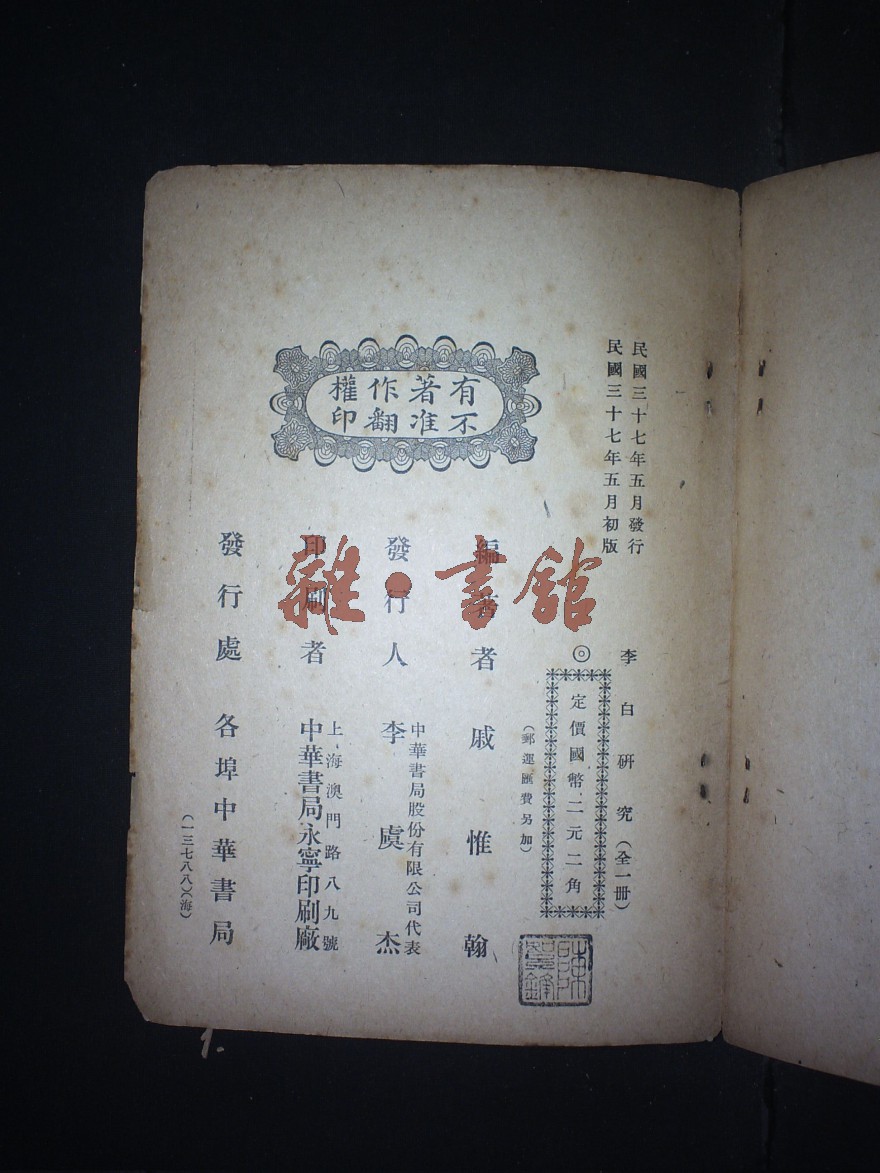 民國三十七年五月發行
民國三十七年五月初版
李白研究(全一冊)
◎
定價國幣二元二角
(郵運匯費另加)
有著作權
不准翻印
編著者 戚惟翰
中華書局股份有限公司代表
發行人 李虞杰
上海澳門路八九號
印刷者 中華書局永寧印刷廠
發行處 各埠中華書局
(一三七八八)(海)
雜·書館